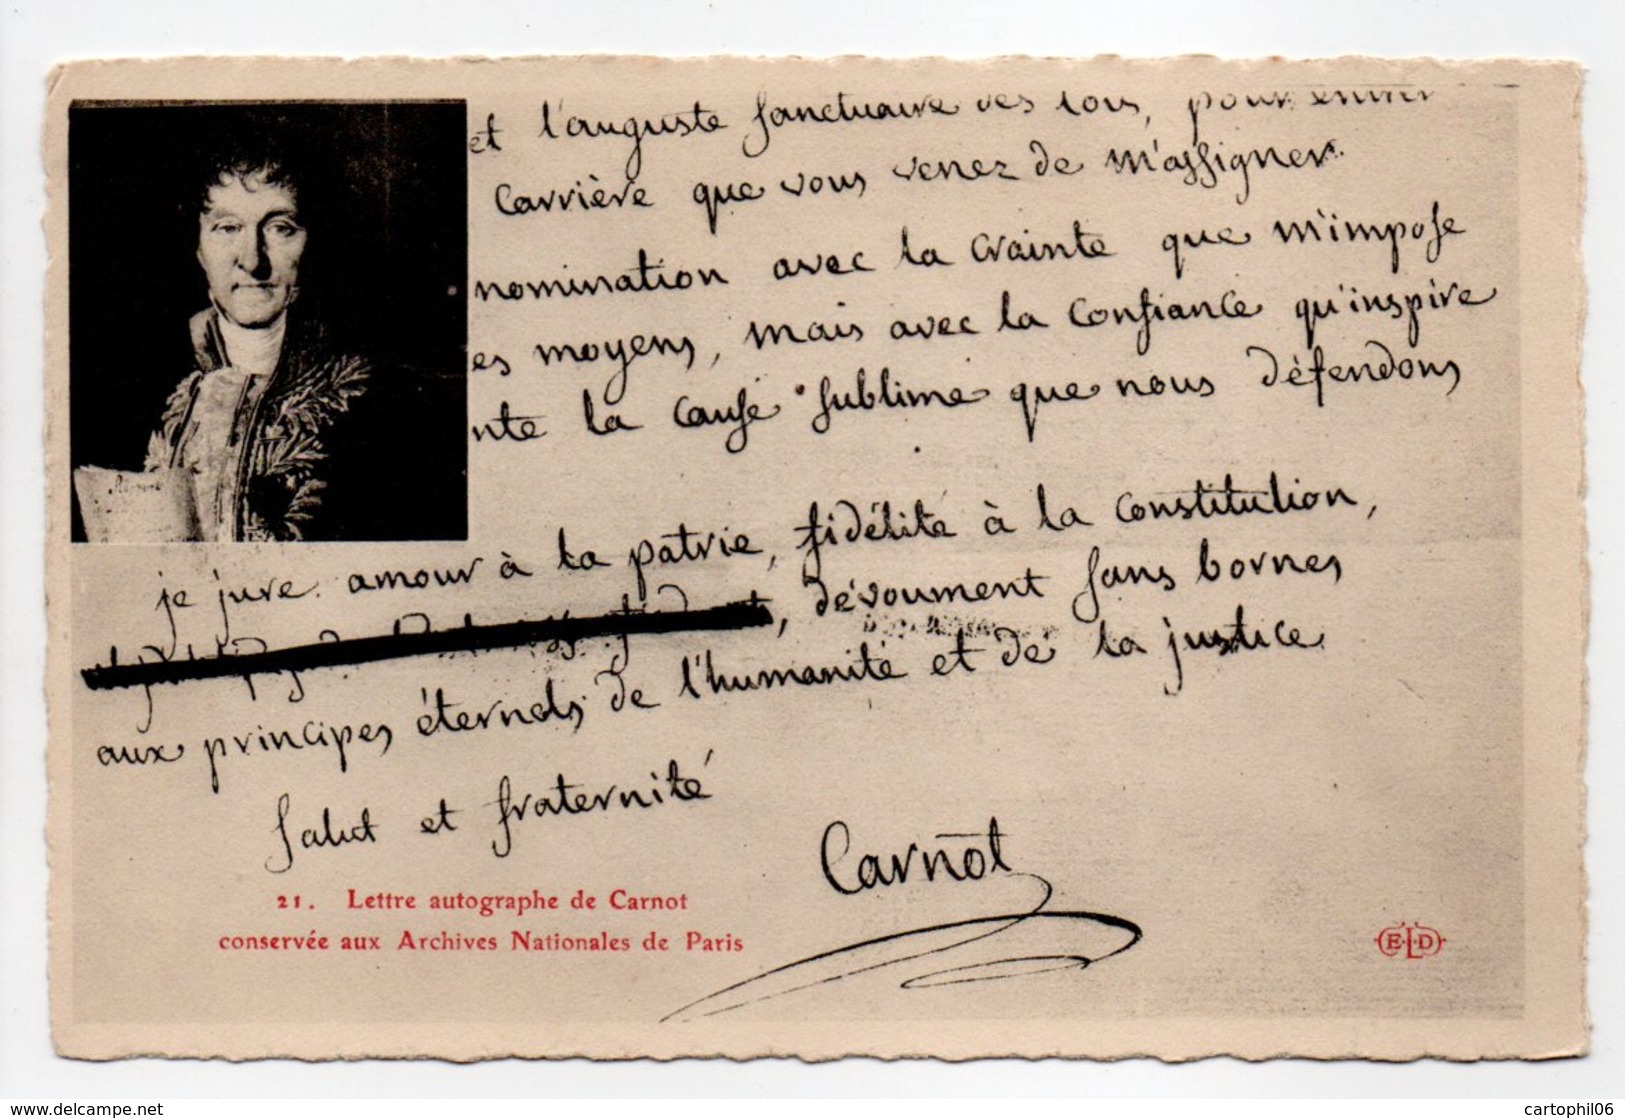 et l'auguste sanctuaire des lois, pour
carrière que vous venez de m'assigner.
nomination avec la crainte que m'impose
es moyens, mais avec la confiance qu'inspire
nte la cause sublime que nous défendons
je jure amour à la patrie, fidélité à la constitution,
, dévoument sans bornes
aux principes éternels de l'humanité et de la justice
Salut et fraternité
Carnot
21. Lettre autographe de Carnot
conservée aux Archives Nationales de Paris
ELD
delcampe.net
cartophil06